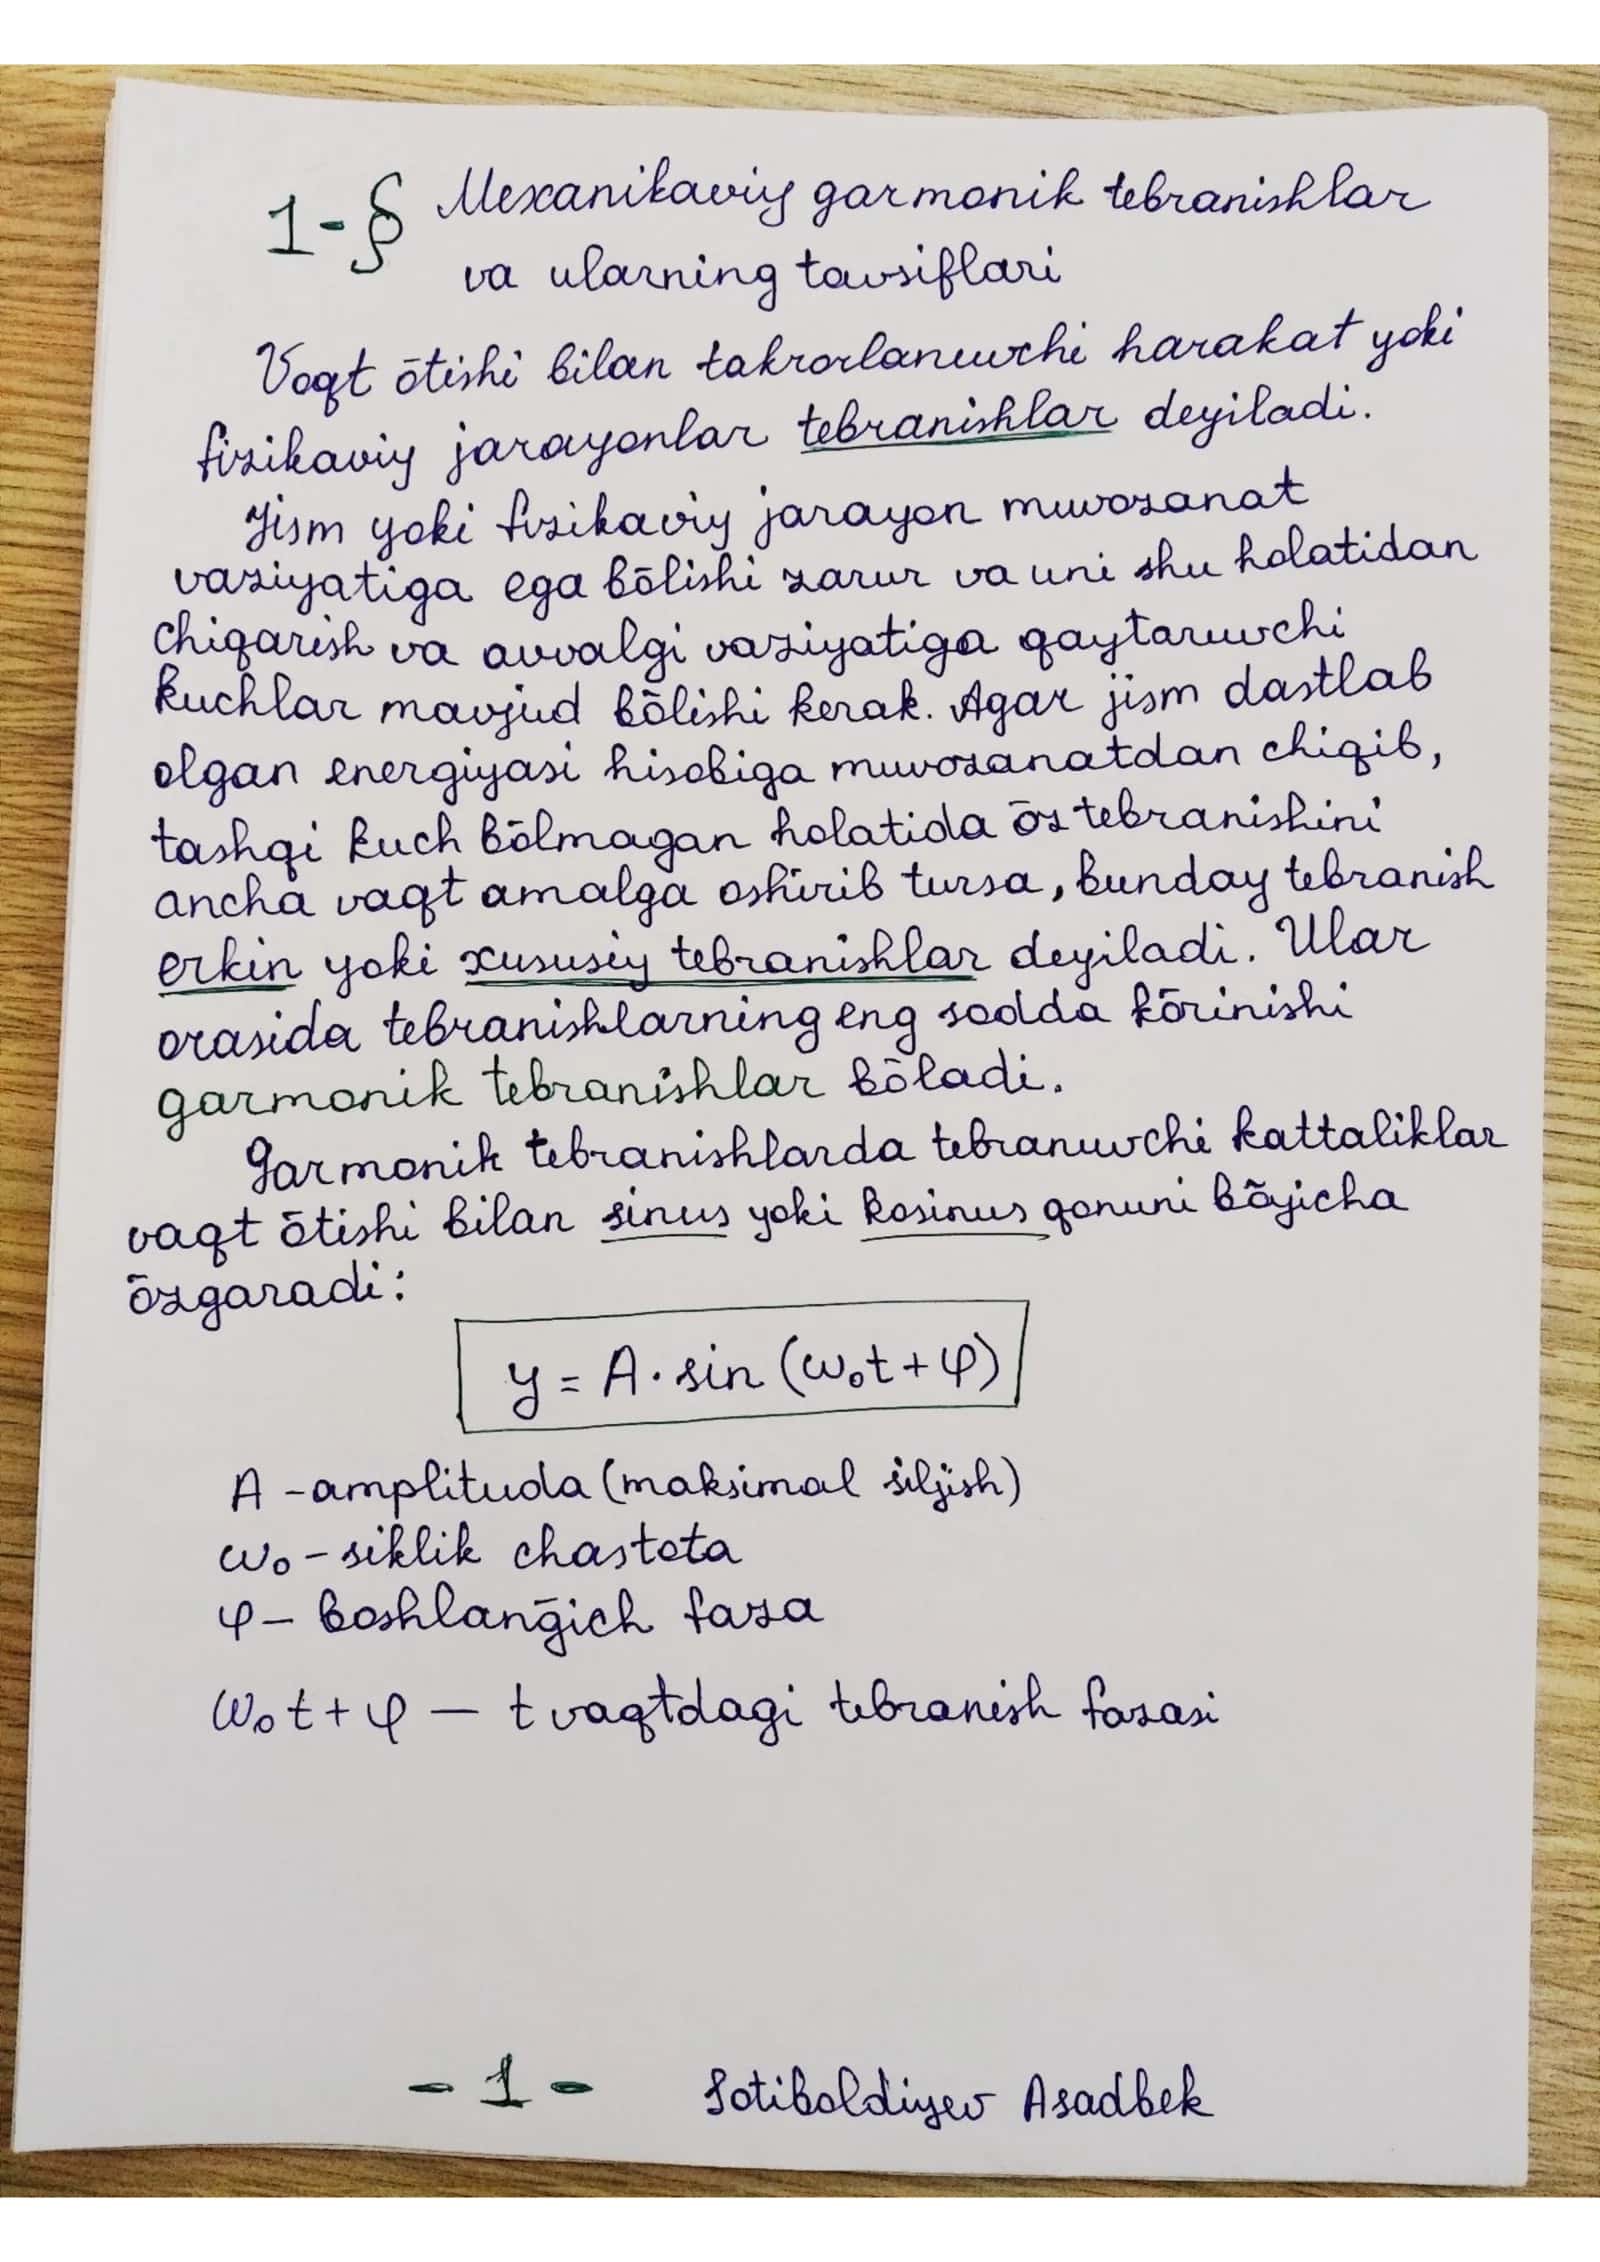 1-§ Mexanikaviy garmonik tebranishlar
va ularning tavsiflari
Vaqt ōtishi bilan takrorlanuvchi harakat yoki
fizikaviy jarayonlar tebranishlar deyiladi.
Jism yoki fizikaviy jarayon muvozanat
vaziyatiga ega bōlishi zarur va uni shu holatidan
chiqarish va avvalgi vaziyatiga qaytaruvchi
kuchlar mavjud bōlishi kerak. Agar jism dastlab
olgan energiyasi hisobiga muvozanatdan chiqib,
tashqi kuch bōlmagan holatida ōz tebranishini
ancha vaqt amalga oshirib tursa, bunday tebranish
erkin yoki xususiy tebranishlar deyiladi. Ular
orasida tebranishlarning eng sodda kōrinishi
garmonik tebranishlar bōladi.
Garmonik tebranishlarda tebranuvchi kattaliklar
vaqt ōtishi bilan sinus yoki kosinus qonuni bōyicha
ōzgaradi:
y = A · sin (ω₀t + φ)
A - amplituda (maksimal siljish)
ω₀ - siklik chastota
φ - boshlanḡich faza
ω₀t + φ — t vaqtdagi tebranish fazasi
- 1 - Sotiboldiyev Asadbek